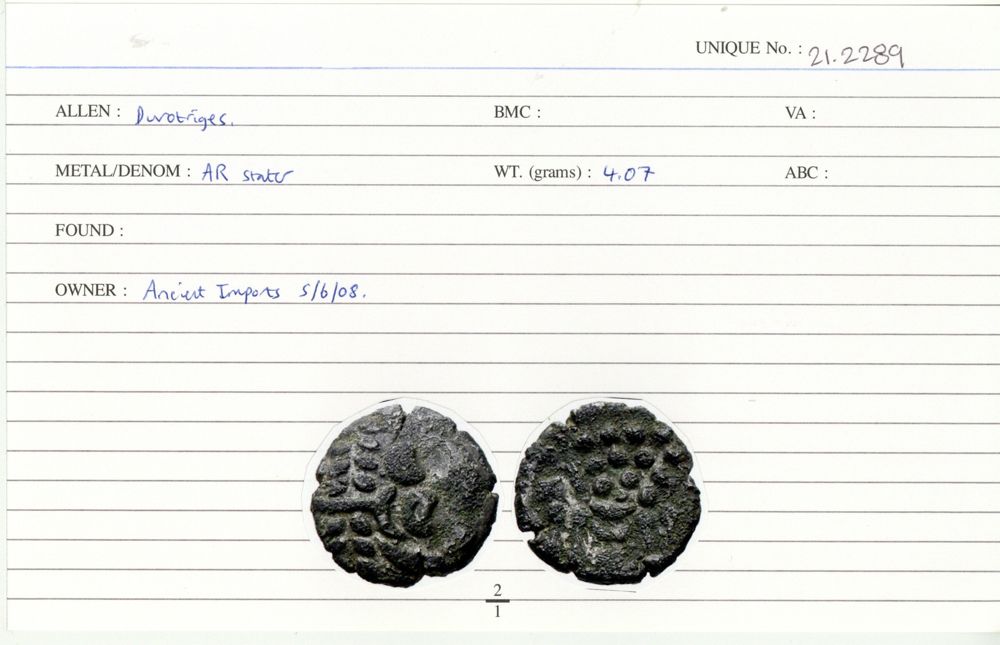 UNIQUE No. : 21.2289
ALLEN : Durotriges. BMC : VA :
METAL/DENOM : AR stater WT. (grams) : 4.07 ABC :
FOUND :
OWNER : Ancient Imports 5/6/08.
2
1